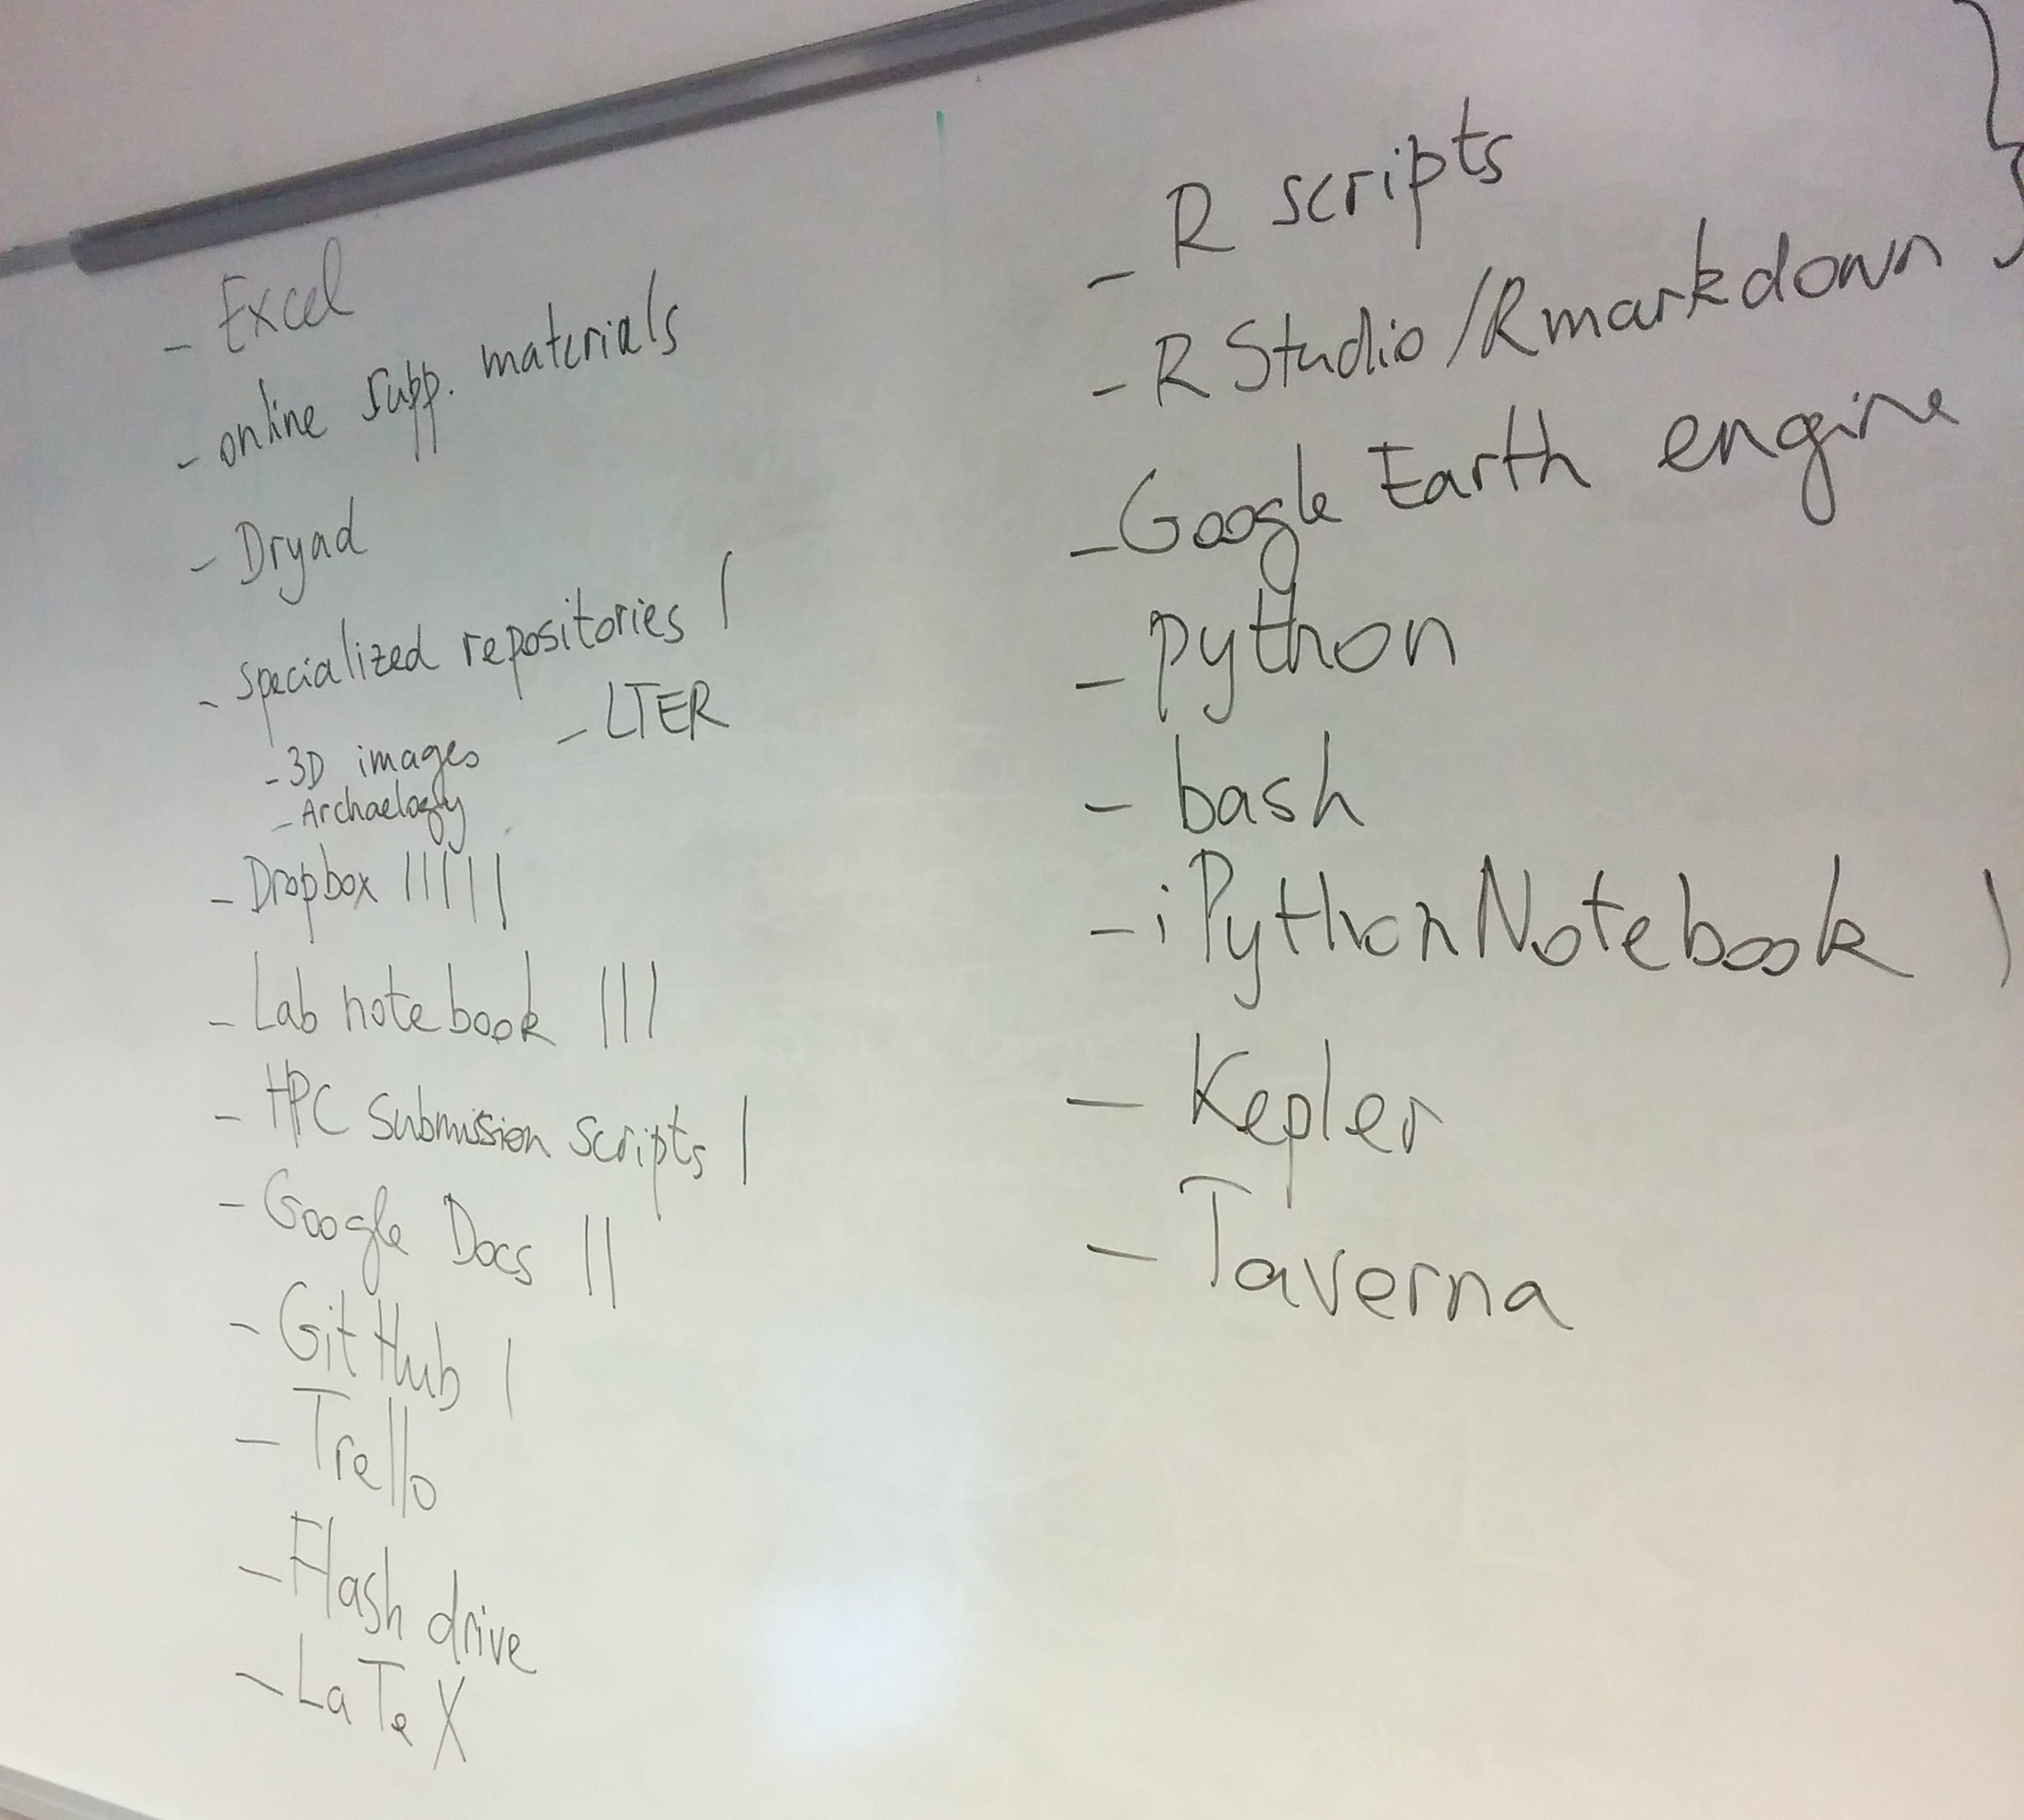 - Excel
- online supp. materials
- Dryad
- specialized repositories |
- 3D images - LTER
- Archaelogy
- Dropbox |||||
- Lab notebook |||
- HPC submission scripts |
- Google Docs ||
- GitHub |
- Trello
- Flash drive
- LaTeX
- R scripts
- R Studio/Rmarkdown }
- Google Earth engine
- python
- bash
- iPythonNotebook |
- Kepler
- Taverna